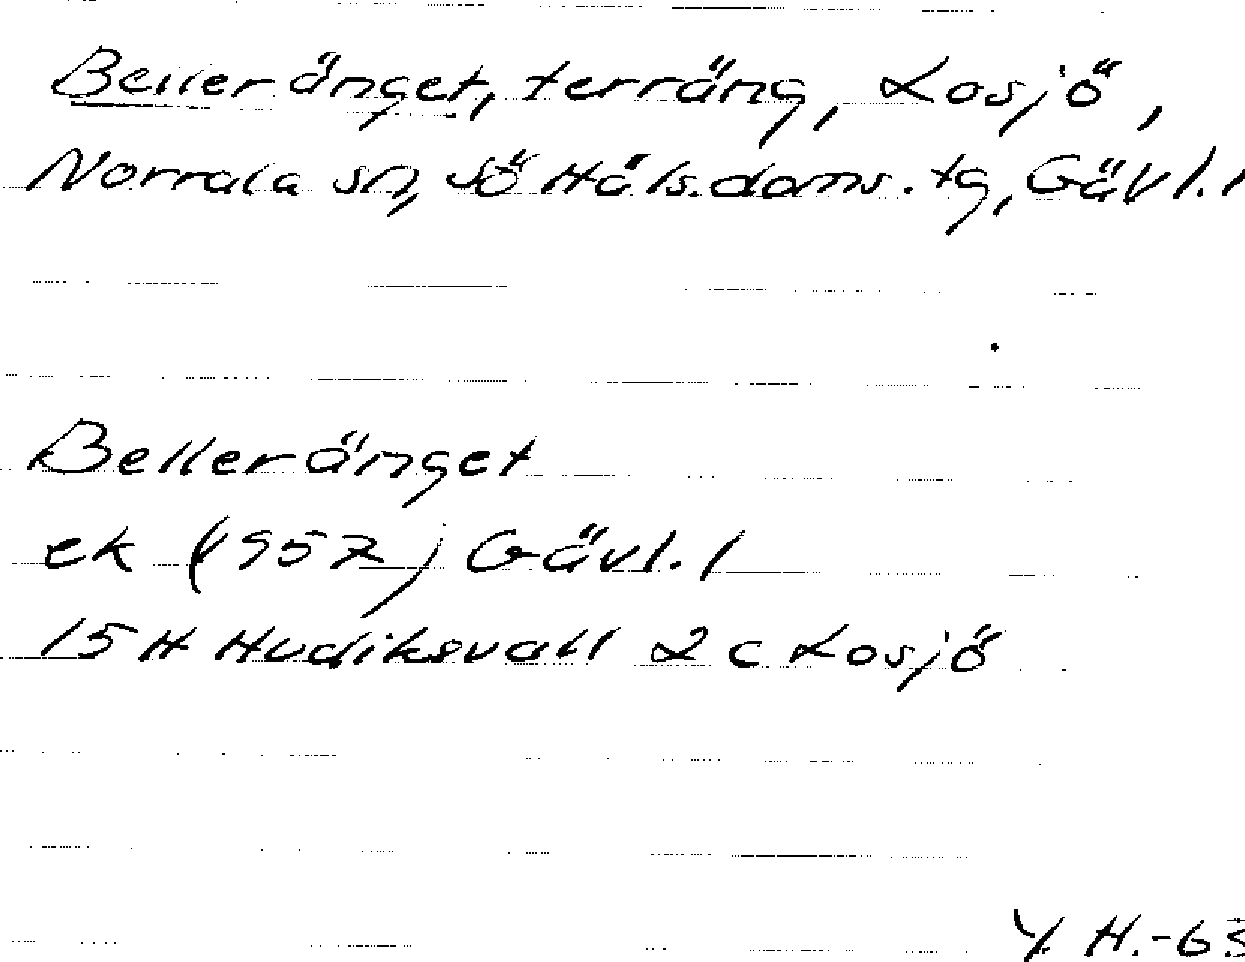 Belleränget, terräng, Losjö,
Norrala sn, Sö Häls.doms.tg, Gävl.l
Belleränget
ek (1957) Gävl.l
15 H Hudiksvall 2 c Losjö
Y. H.-63